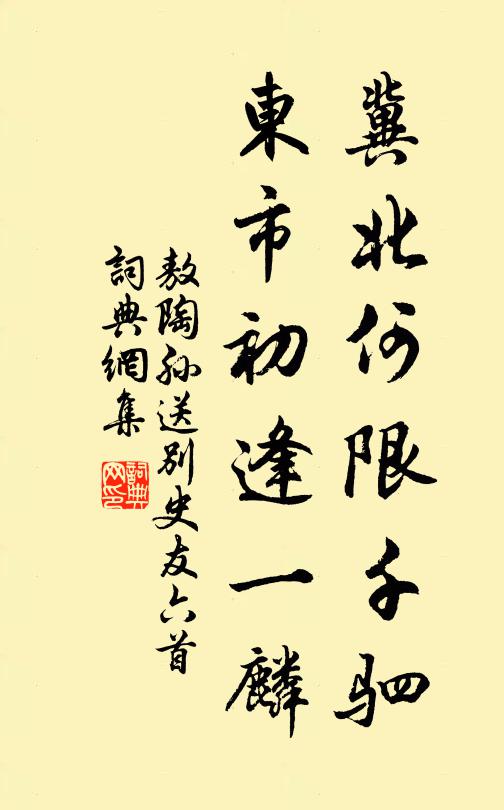 冀北何限千駟
東市初逢一麟
敖陶孫送別史友六首
詞典網集
詞典網印